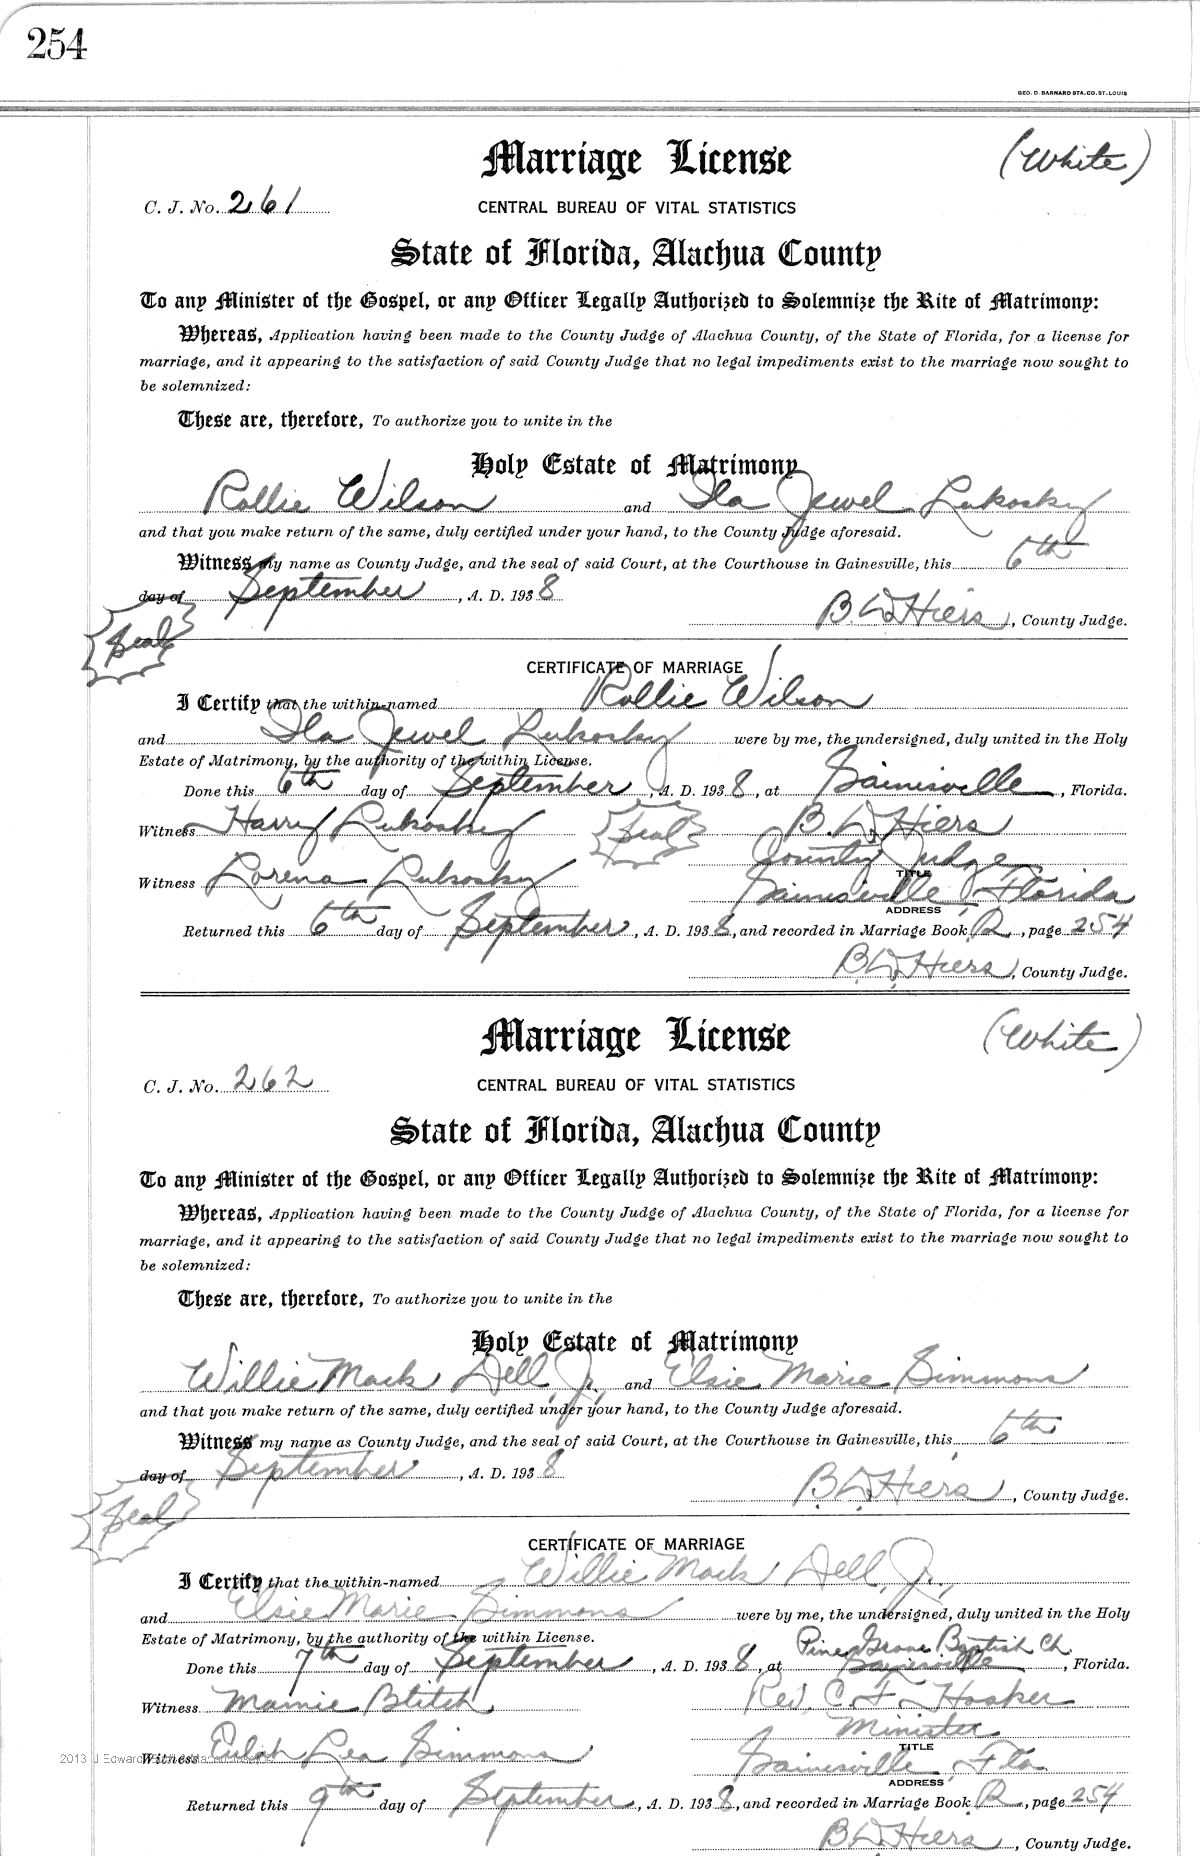 254
GEO. D. BARNARD STA. CO. ST. LOUIS
Marriage License (White)
C. J. No. 261 CENTRAL BUREAU OF VITAL STATISTICS
State of Florida, Alachua County
To any Minister of the Gospel, or any Officer Legally Authorized to Solemnize the Rite of Matrimony:
Whereas, Application having been made to the County Judge of Alachua County, of the State of Florida, for a license for
marriage, and it appearing to the satisfaction of said County Judge that no legal impediments exist to the marriage now sought to
be solemnized:
These are, therefore, To authorize you to unite in the
Holy Estate of Matrimony
Rollie Wilson and Ila Jewel Lukosky
and that you make return of the same, duly certified under your hand, to the County Judge aforesaid.
Witness my name as County Judge, and the seal of said Court, at the Courthouse in Gainesville, this 6th
day of September, A. D. 1938
Seal B. D. Hiers, County Judge.
CERTIFICATE OF MARRIAGE
I Certify that the within-named Rollie Wilson
and Ila Jewel Lukosky were by me, the undersigned, duly united in the Holy
Estate of Matrimony, by the authority of the within License.
Done this 6th day of September, A. D. 1938, at Gainesville, Florida.
Witness Harry Lukosky Seal B. D. Hiers
County Judge
TITLE
Witness Lorena Lukosky Gainesville, Florida
ADDRESS
Returned this 6th day of September, A. D. 1938, and recorded in Marriage Book R, page 254
B. D. Hiers, County Judge.
Marriage License (White)
C. J. No. 262 CENTRAL BUREAU OF VITAL STATISTICS
State of Florida, Alachua County
To any Minister of the Gospel, or any Officer Legally Authorized to Solemnize the Rite of Matrimony:
Whereas, Application having been made to the County Judge of Alachua County, of the State of Florida, for a license for
marriage, and it appearing to the satisfaction of said County Judge that no legal impediments exist to the marriage now sought to
be solemnized:
These are, therefore, To authorize you to unite in the
Holy Estate of Matrimony
Willie Mack Dell, Jr., and Elsie Marie Simmons
and that you make return of the same, duly certified under your hand, to the County Judge aforesaid.
Witness my name as County Judge, and the seal of said Court, at the Courthouse in Gainesville, this 6th
day of September, A. D. 1938
Seal B. D. Hiers, County Judge.
CERTIFICATE OF MARRIAGE
I Certify that the within-named Willie Mack Dell, Jr.,
and Elsie Marie Simmons were by me, the undersigned, duly united in the Holy
Estate of Matrimony, by the authority of the within License.
Pine Grove Baptist Ch.
Done this 7th day of September, A. D. 1938, at Gainesville, Florida.
Witness Mamie Blitch Rev. C. F. Hooker
Minister
TITLE
Witness Lea Simmons Gainesville, Fla.
2013 J Edward
ADDRESS
Returned this 9th day of September, A. D. 1938, and recorded in Marriage Book R, page 254
B. D. Hiers, County Judge.